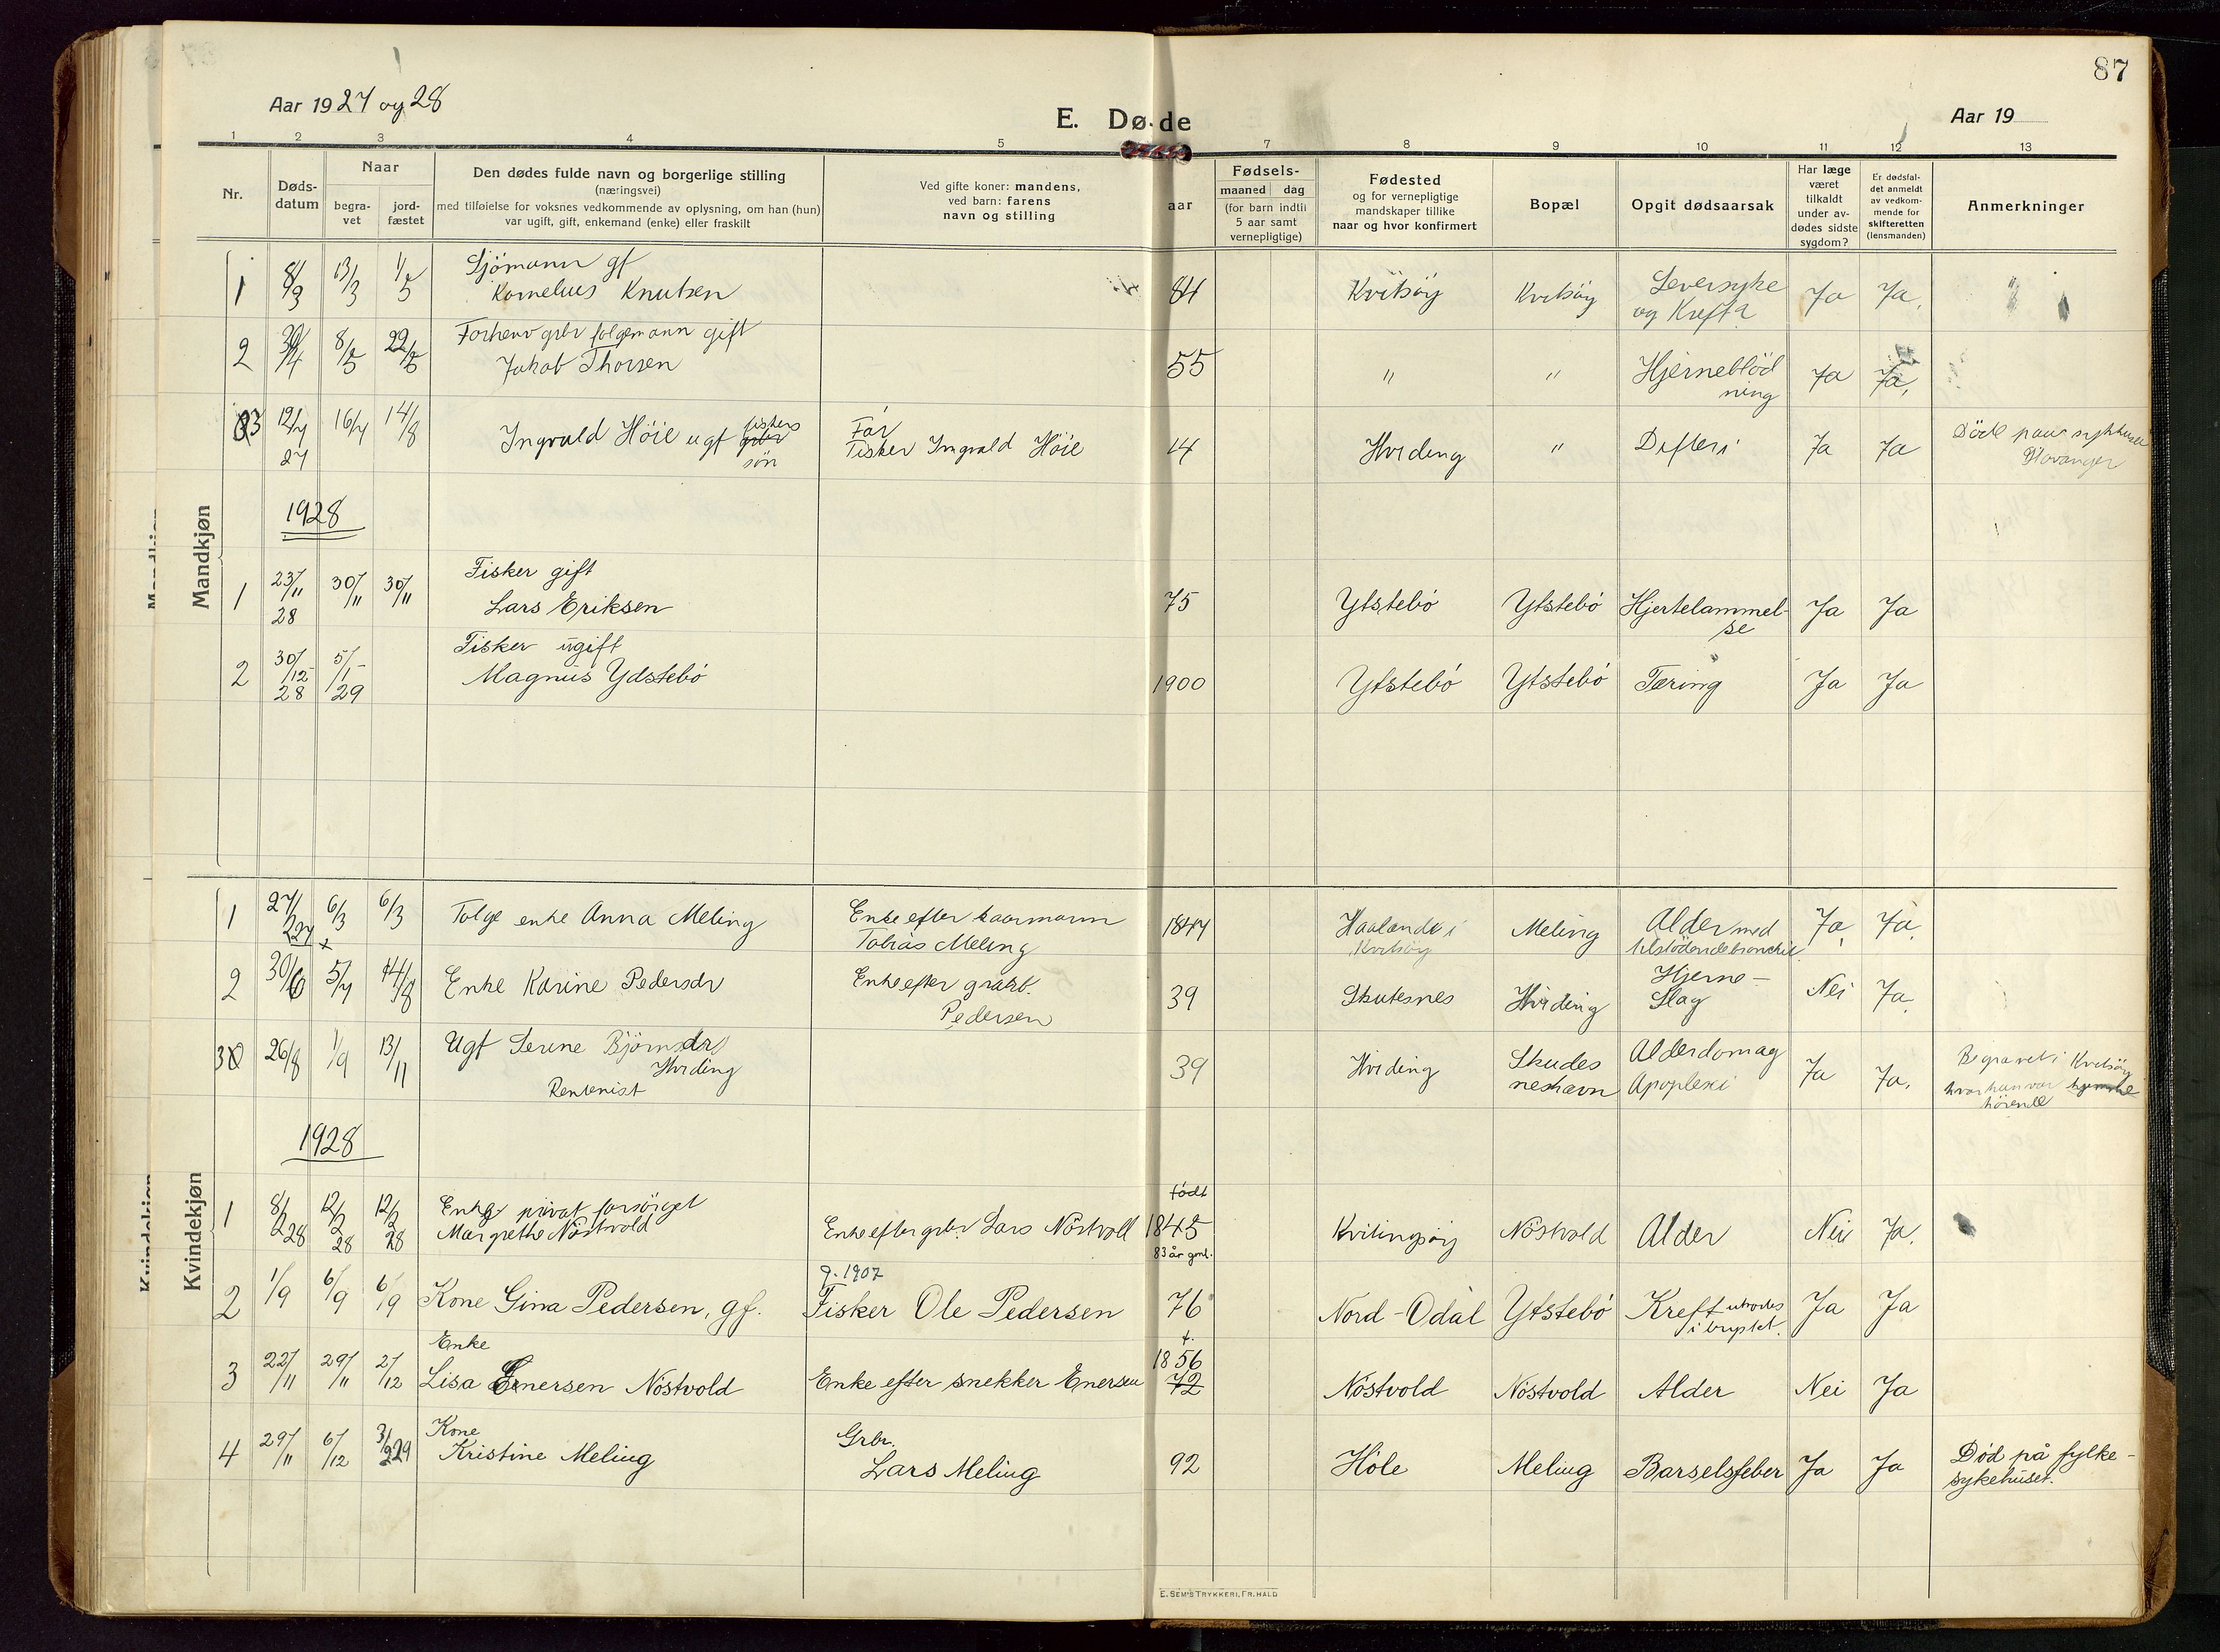 87
Aar 1927 og 28
E. Døde
Aar 19
1 2 3 4 5 7 8 9 10 11 12 13
Nr.
Døds-
datum
Naar
begra-
vet
jord-
fæstet
Den dødes fulde navn og borgerlige stilling
(næringsvei)
med tilføielse for voksnes vedkommende av oplysning, om han (hun)
var ugift, gift, enkemand (enke) eller fraskilt
Ved gifte koner: mandens,
ved barn: farens
navn og stilling
aar
Fødsels-
maaned dag
(for barn indtil
5 aar samt
vernepligtige)
Fødested
og for vernepligtige
mandskaper tillike
naar og hvor konfirmert
Bopæl
Opgit dødsaarsak
Har læge
været
tilkaldt
under av-
dødes sidste
sygdom?
Er dødsfal-
det anmeldt
av vedkom-
mende for
skifteretten
(lensmanden)
Anmerkninger
Mandkjøn
Sjömann gf
1 8/3 13/3 1/5 Kornelius Knutsen 84 Kvitsöy Kvitsöy Leversyke og Kreft Ja Ja
Forhenv grbr folgemann gift
2 30/4 8/5 22/5 Jakob Thorsen 55 " " Hjerneblöd ning Ja Ja,
3 12/7 27 16/7 14/8 Ingvald Höie ugf fiskers sön Far Fisker Ingvald Höie 14 Hviding " Difteri Ja Ja Död paa sykhuset Stavanger
1928
Fisker gift
1 23/11 28 30/11 30/11 Lars Eriksen 75 Ytstebö Ytstebö Hjertelammel- se Ja Ja
Fisker ugift
2 30/12 28 5/1 29 Magnus Ydstebö 1900 Ytstebö Ytstebö Tæring Ja Ja
Kvindekjøn
1 27/2 27 6/3 6/3 Folge enke Anna Meling Enke efter kaarmann Tobias Meling 1847 Haaland i Kvitsöy Meling Alder med tilstödende bronchit Ja, Ja.
2 30/6 5/7 14/8 Enke Karine Pedersdr Enke efter grbr. Pedersen 39 Skutesnes Hviding Hjerne- Slag Nei Ja.
3 26/8 1/9 13/11 Ugf Serine Björnsdr Hviding Rentenist 39 Hviding Skudes neshavn Alderdom og Apoplexi Ja Ja. Begravet i Kvitsöy hvor hun var hjemme hörende
1928
födt
Enke privat forsörget
1 8/2 28 12/2 28 12/2 28 Margrethe Nöstvold Enke efter grbr. Lars Nöstvold 1845 Kvitingsöy Nöstvold Alder Nei Ja.
83 år gml.
g. 1907
2 1/9 6/9 6/9 Kone Gina Pedersen, gf. Fisker Ole Pedersen 76 Nord-Odal Ytstebö Kreft i brystet. Ja Ja
Enke
f. 1856
3 22/11 29/11 2/12 Lisa Enersen Nöstvold Enke efter snekker Enersen 72 Nöstvold Nöstvold Alder Nei Ja
Kone
Grbr.
4 29/11 6/12 3/2 29 Kristine Meling Lars Meling 92 Höle Meling Barselsfeber Ja Ja Död på fylke- sykehuset.
E. SEM'S TRYKKERI, FR.HALD